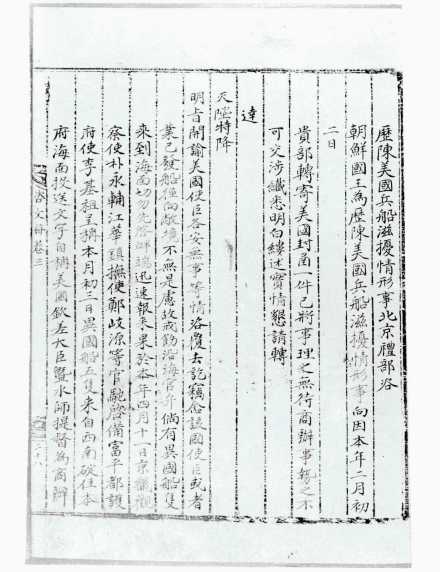 歷陳美國兵船滋擾情形事北京禮部咨
朝鮮國王為歷陳美國兵船滋擾情形事向因本年二月初
二日
貴部轉寄美國封函一件已將事理之無行商辦事務之不
可交涉纖悉明白縷述實情懇請轉
達
天陛特降
明旨開諭美國使臣各安無事等情咨覆去訖竊念該國使臣或者
業已發船徑向敝境不無是慮故戒飭沿海官弁倘有異國船隻
來到海面切勿先啓釁端迅速報來果於本年四月十一日京畿觀
察使朴永輔江華鎮撫使鄭岐源等官馳啓備富平都護
府使李基祖呈稱本月初三日異國船五隻來自西南碇住本
府海面投送文字自稱美國欽差大臣曁水師提督為商辦
咨文抄卷三